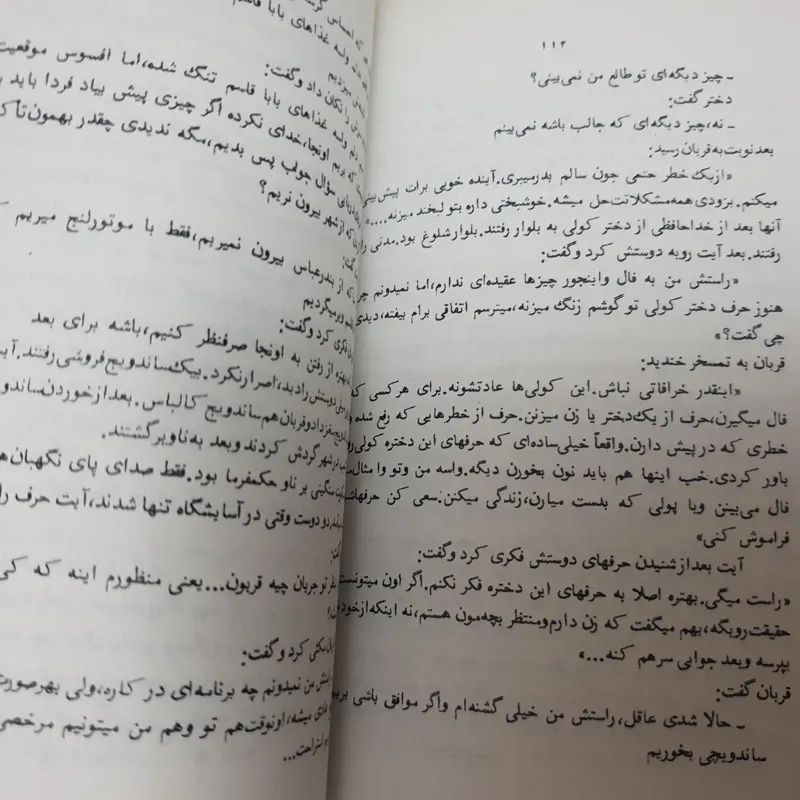 ۱۱۲
ـ چیز دیگه‌ای تو طالع من نمی‌بینی؟
دختر گفت:
ـ نه، چیز دیگه‌ای که جالب باشه نمی‌بینم
بعد نوبت به قربان رسید:
«از یک خطر حتمی جون سالم بدرمیبری. آینده خوبی برات پیش‌بینی
میکنم. بزودی همه مشکلاتت حل میشه. خوشبختی داره بتو لبخند میزنه....»
آنها بعد از خداحافظی از دختر کولی به بلوار رفتند. بلوار شلوغ بود. مدتی راه
رفتند. بعد آیت رو به دوستش کرد و گفت:
«راستش من به فال و اینجور چیزها عقیده‌ای ندارم، اما نمیدونم چرا
هنوز حرف دختر کولی تو گوشم زنگ میزنه، میترسم اتفاقی برام بیفته، دیدی
چی گفت؟»
قربان به تمسخر خندید:
«اینقدر خرافاتی نباش. این کولی‌ها عادتشونه. برای هرکسی که
فال میگیرن، حرف از یک دختر یا زن میزنن. حرف از خطرهایی که رفع شده و
خطری که در پیش دارن. واقعاً خیلی ساده‌ای که حرفهای این دختره کولی رو
باور کردی. خب اینها هم باید نون بخورن دیگه. واسه من و تو و امثال
فال می‌بینن و با پولی که بدست میارن، زندگی میکنن. سعی کن حرفهاشو
فراموش کنی»
آیت بعد از شنیدن حرفهای دوستش فکری کرد و گفت:
«راست میگی. بهتره اصلا به حرفهای این دختره فکر نکنم. اگر اون میتونست
حقیقت رو بگه، بهم میگفت که زن دارم و منتظر بچه‌مون هستم، نه اینکه از خودم
بپرسه و بعد جوابی سرهم کنه...»
قربان گفت:
ـ حالا شدی عاقل، راستش من خیلی گشنه‌ام و اگر موافق باشی بریم
ساندویچی بخوریم
که احساس
غذاهای بابا قاسم
را تکان داد و گفت:
دلم واسه غذاهای بابا قاسم تنگ شده، اما افسوس موقعیت
که بریم اونجا، خدای نکرده اگر چیزی پیش بیاد فردا باید
سؤال جواب پس بدیم، مگه ندیدی چقدر بهمون تأکید
که از شهر بیرون نریم؟
گفت:
که از بندرعباس بیرون نمیریم، فقط با موتورلنج میریم
و برمیگردیم
فکری کرد و گفت:
بهتره از رفتن به اونجا صرفنظر کنیم، باشه برای بعد
دوستش را دید، اصرار نکرد. بیک ساندویچ فروشی رفتند. آیت
مغز داد و قربان هم ساندویچ کالباس. بعد از خوردن ساندویچ
در شهر گردش کردند و بعد به ناو برگشتند.
سنگینی بر ناو حکمفرما بود. فقط صدای پای نگهبان‌ها
دو دوست وقتی در آسایشگاه تنها شدند، آیت حرف را
تو جریان چیه قربون... یعنی منظورم اینه که کی
مکثی کرد و گفت:
من نمیدونم چه برنامه‌ای در کاره، ولی بهرصورت
میشه، اونوقت هم تو و هم من میتونیم مرخصی
استراحت...